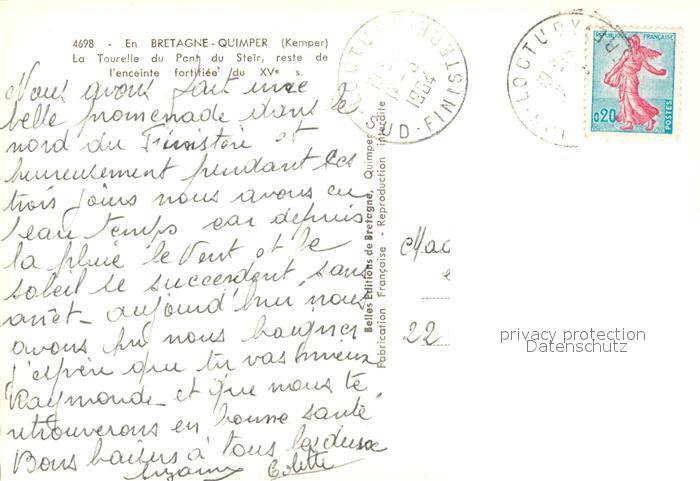 4698 - En BRETAGNE-QUIMPER (Kemper)
La Tourelle du Pont du Steïr, reste de
l'enceinte fortifiée du XVe s.
Nous avons fait une
belle promenade dans le
nord du Finistère et
heureusement pendant ces
trois jours nous avons eu
beau temps car depuis
la pluie le vent et le
soleil se succèdent sans
arrêt - aujourd'hui nous
avons pu nous baigner
j'espère que tu vas mieux
Raymonde et que nous te
retrouverons en bonne santé
Bons baisers à tous les deux
Suzanne Colette
Belles Editions de Bretagne, Quimper
Fabrication Française - Reproduction interdite
LOCTUDY
1964
SUD-FINISTERE
LOCTUDY
REPUBLIQUE FRANÇAISE
0,20
POSTES
22
privacy protection
Datenschutz